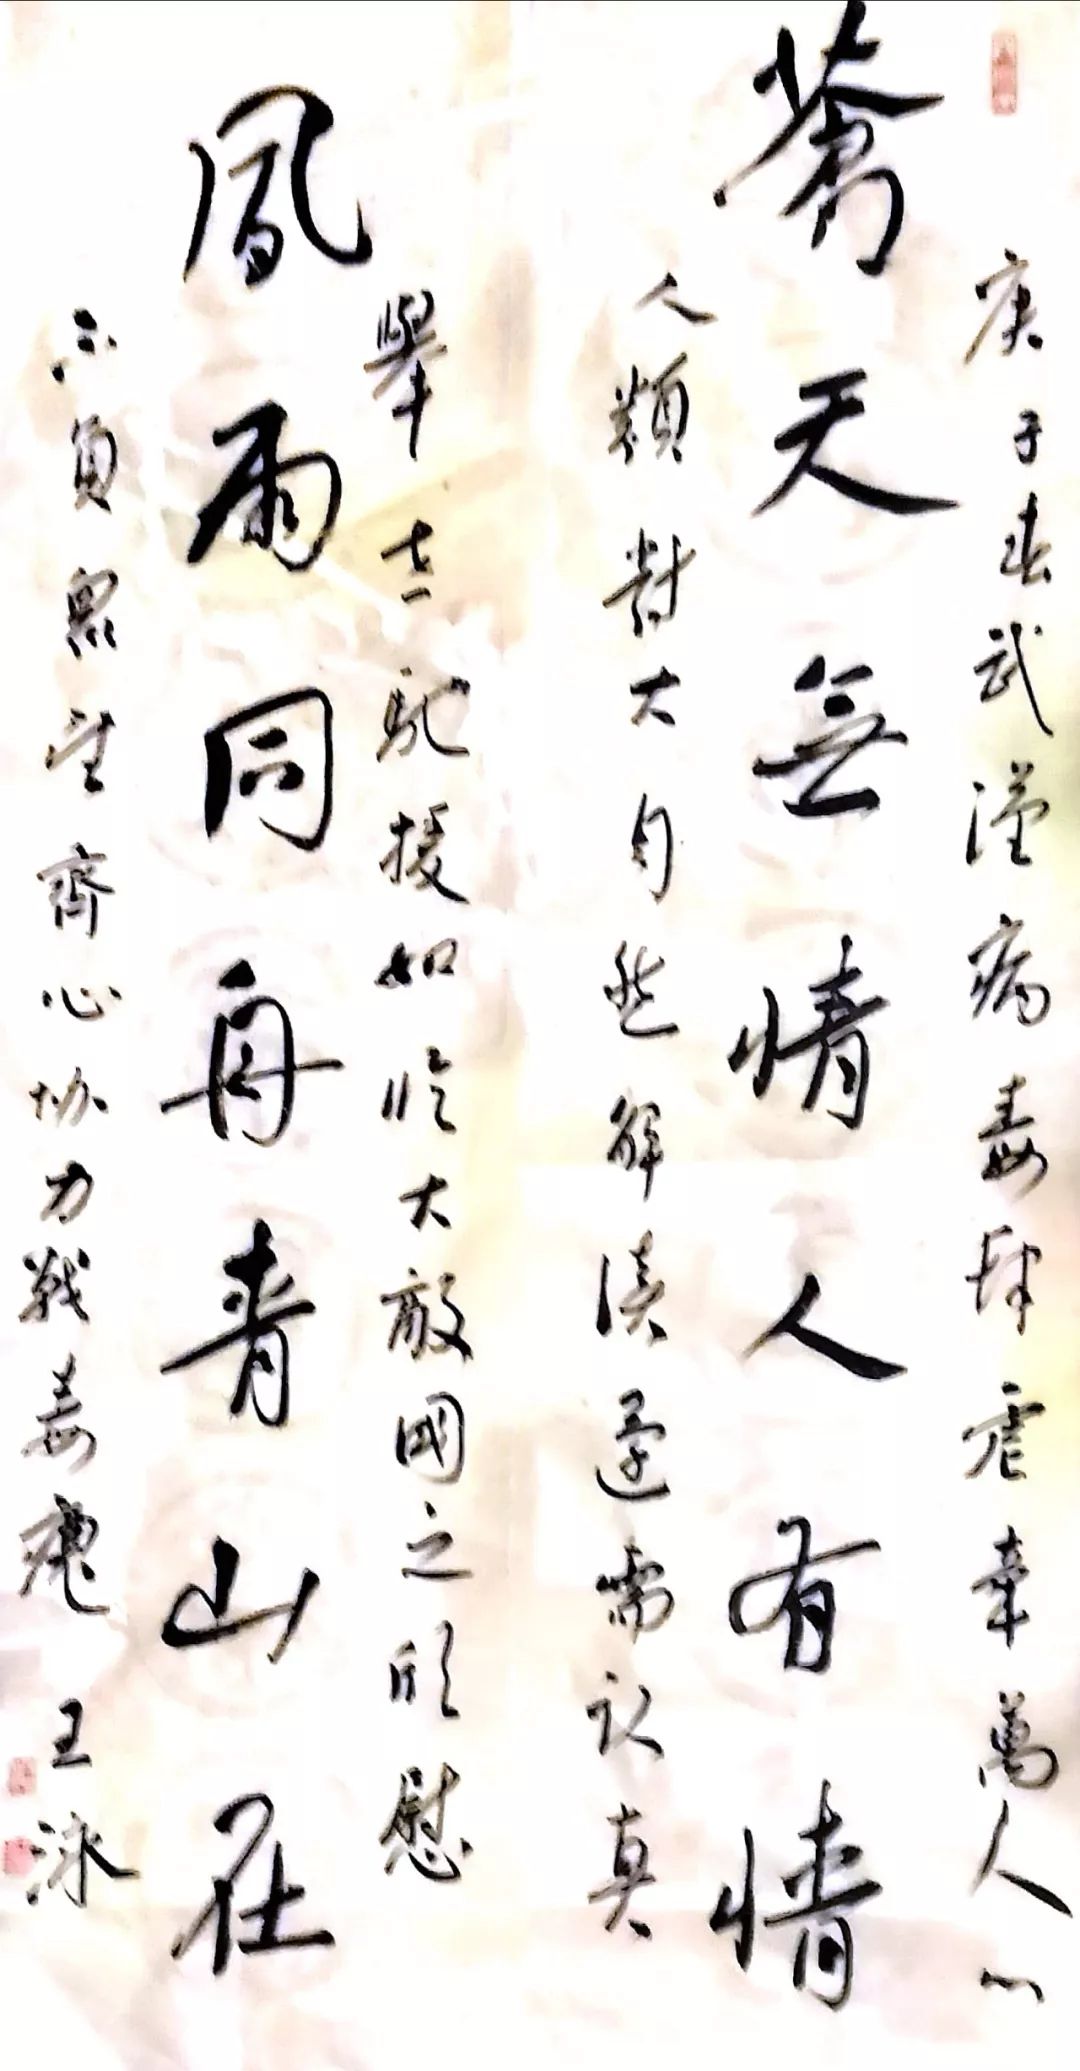 庚子春武漢病毒肆虐牽萬人心
蒼天無情人有情
人類對大自然解讀還需认真
舉世馳援如臨大敵國之欣慰
風雨同舟青山在
不負眾望齊心协力戰毒魔 王泳